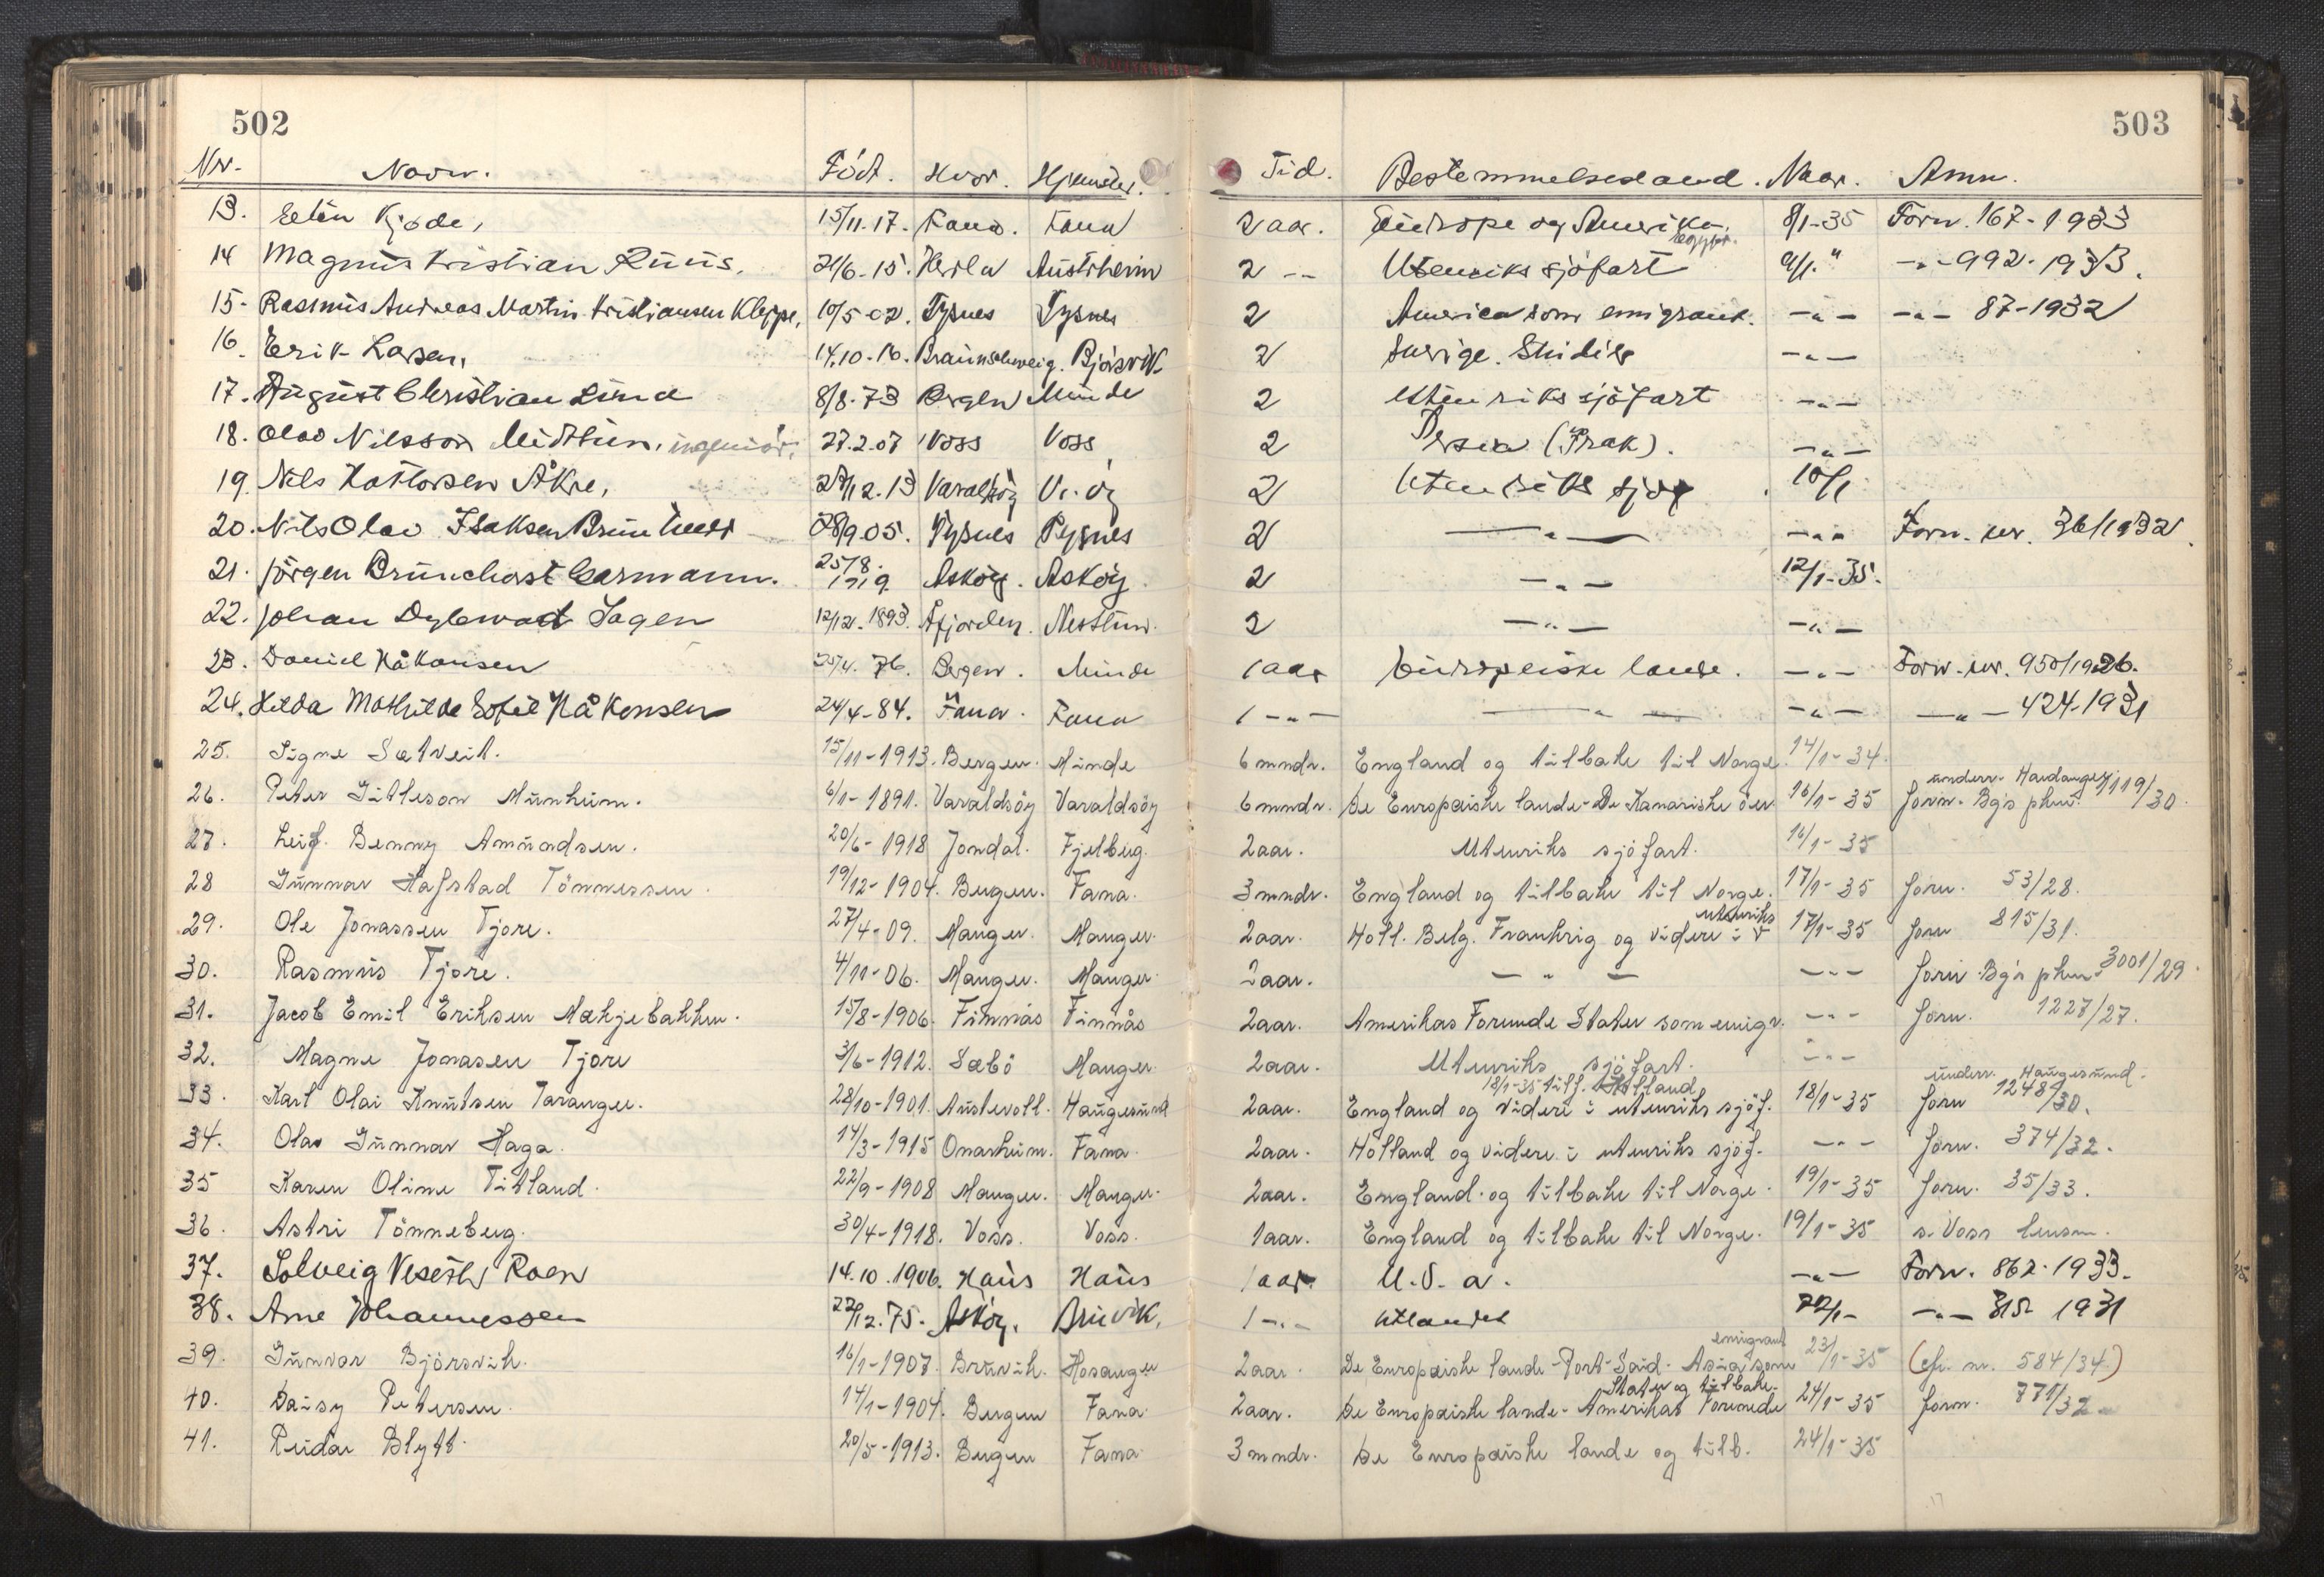 502
503
Nr. Navn. Född. Hvor. Hjemsted. Tid. Bestemmelsesland. Naar. Anm.
13. Kjøde, 15/11.17. Fana. Fana 2 aar. Europa og Amerika. 8/1-35 Forn. 167-1933
14 Magnus Kristian 21/6-15. Herdla Austrheim 2 -- Utenriks sjöfart 9/1 " -"- 992-1933.
15- Rasmus Andreas Martin Kristiansen Kleppe, 10/5-02. Tysnes Tysnes 2 America som emigrant. -"- -"- 87-1932
16. Erik Larsen, 14.10-16. Braunschweig. Bjórsvik 2 Sverige. Studier -"-
17. August Christian Lund 8/8-73 Bergen Minde 2 Utenriks sjöfart -"-
18. Olav Nilsson Midttun, ingeniör, 27.2.07 Voss Voss 2 Persia (Irak). -"-
19. Nils Åkre, 12.13 Varaldsöy V. öy 2 Utenriks sjöf 10/1
20. Nils Olav Isaksen 28/9 05. Tysnes Tysnes 2 -"- -"- Forn. nr. 36/1932.
21. Jörgen Brunchorst Carmann. 25/8. 1919 Asköy. Asköy 2 -"- 12/1-35.
22. Johan Sagen 12/12.1893. Åfjorden. Nesttun. 2 -"- -"-
23. Daniel Håkonsen 25/4. 76. Bergen. Minde 1 aar Europeiske lande. -"- Forn. nr. 950/1926.
24. Hilda Mathilde Sofie Håkonsen 24/4-84. Fana. Fana 1 -"- -"- -"- -"- 424-1931
25. Signe Sætveit. 15/11-1913. Bergen. Minde 6 mndr. England og tilbake til Norge. 14/1-34.
26. Peter Gitleson Munheim. 6/1-1891. Varaldsöy Varaldsöy 6 mndr. De Europæiske lande - De Kanariske öer 16/1-35 Forn. Bg's pkm. underr. Hardanger 1119/30.
27. Leif Benny Amundsen. 20/6-1918 Jondal. Fjelberg. 2 aar. Utenriks sjöfart. 16/1-35
28 Gunnar Hafstad Tönnessen. 19/12-1904. Bergen. Fana. 3 mndr. England og tilbake til Norge. 17/1-35 forn. 53/28.
29. Ole Jonassen Tjore. 27/4-09. Manger. Manger. 2 aar. Holl. Belg. Frankrig og videre i utenriks 17/1-35 forn 815/31.
30. Rasmus Tjore. 4/11-06. Manger. Manger 2 aar. - " - -"- forn. Bg's pkm. 3001/29.
31. Jacob Emil Eriksen Mækjebakken. 15/8-1906. Finnås Finnås 2 aar. Amerikas Forenede Stater som emigr. -"- forn. 1227/27.
32. Magne Jonasen Tjore 3/6-1912. Sæbö Manger 2 aar. Utenriks sjöfart. -"-
33. Karl Olai Knutsen Taranger. 28/10-1901. Austevoll. Haugesund 2 aar. England og videre i utenriks sjöf. 18/1-35 tilf. Holland 18/1-35 forn 1248/30. underr. Haugesund.
34. Olav Gunnar Haga. 14/3-1915 Onarheim. Fana. 2 aar. Holland og videre i utenriks sjöf. -"- forn. 374/32.
35 Karen Oline Titland. 22/9-1908 Manger. Manger. 2 aar. England og tilbake til Norge. 19/1-35 forn. 35/33.
36. Astri Tönneberg. 30/4-1918. Voss. Voss. 1 aar. England og tilbake til Norge. 19/1-35 s. Voss lensm.
37. Solveig Veseth Roen 14.10.1906. Haus Haus 1 aar U.S.a. -"- Forn. 862.1933.
38. Arne Johannessen 22/12.75. Asköy. Bruvik. 1 -"- Utlandet 22/1- -"- 315 1931
39. Gunvor Björsvik. 16/1-1907. Bruvik. Hosanger 2 aar. De Europæiske lande - Port-Said. Asia som emigrant 23/1-35 (cfr. nr. 584/34.)
40. Daisy Petersen. 14/1-1904. Bergen Fana. 2 aar. De Europæiske lande - Amerikas Forenede Stater og tilbake. 24/1-35 forn. 771/32
41. Reidar Blytt. 20/5-1913. Bergen Fana. 3 mndr. De Europæiske lande og tilb. 24/1-35